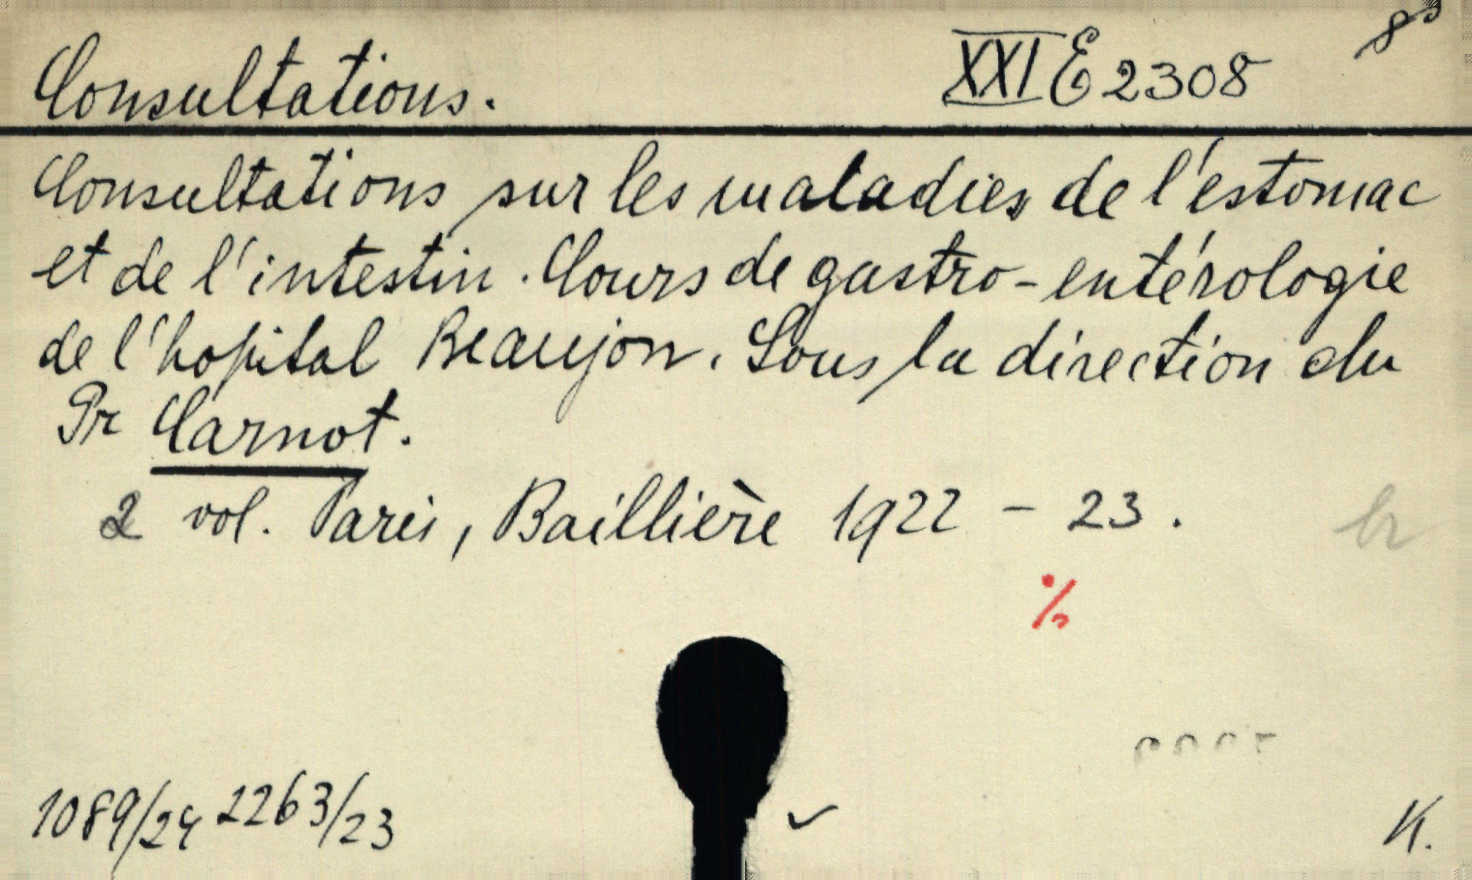 Consultations. XXI E 2308 8°
Consultations sur les maladies de l'estomac
et de l'intestin. Cours de gastro-entérologie
de l'hopital Beaujon. Sous la direction du
Pr Carnot.
2 vol. Paris, Baillière 1922 - 23.
br
%
1089/24 2263/23
K.